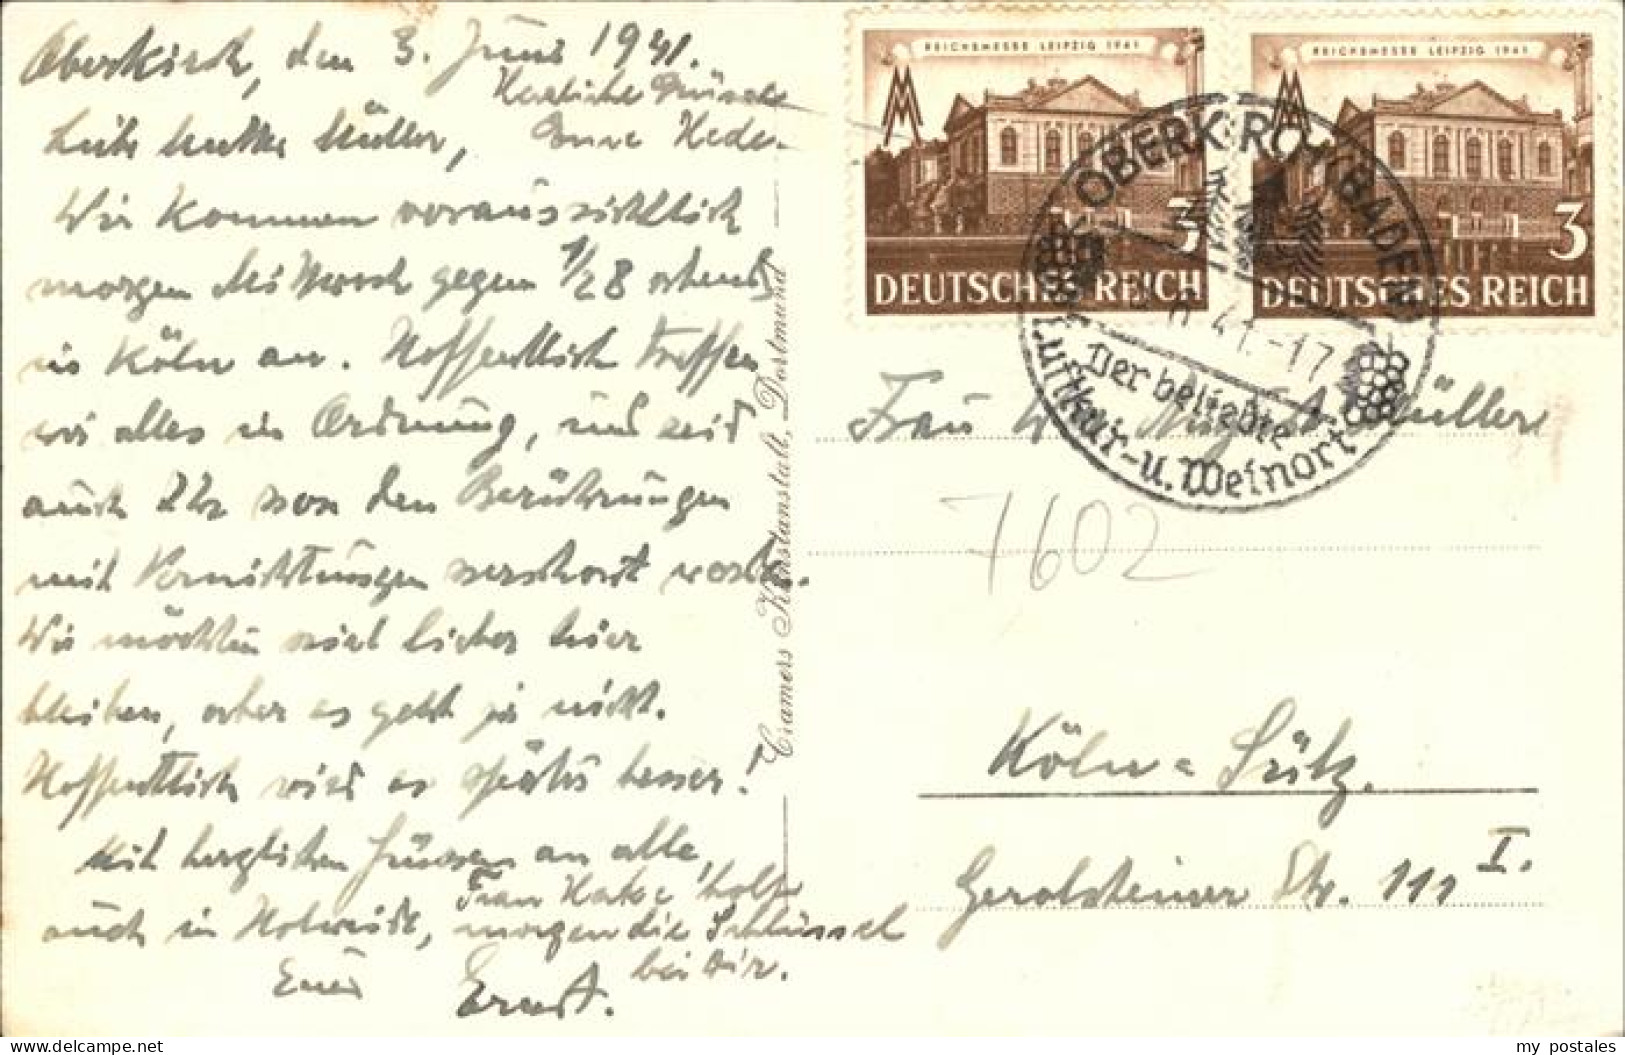 Oberkirch, den 3. Juni 1941.
Herzliche Grüsse
Eure Hede.
Liebe Mutter Müller,
Wir kommen voraussichtlich
morgen Mittwoch gegen 1/2 8 abends
in Köln an. Hoffentlich treffen
wir alles in Ordnung, und seid
auch Ihr von den Berührungen
mit Vernichtungen verschont worden.
Wir möchten viel lieber hier
bleiben, aber es geht ja nicht.
Hoffentlich wird es später besser!
Mit herzlichen Grüssen an alle,
auch in Holweide,
Frau Hake holt
morgen die Schlüssel
bei Dir.
Euer Ernst.
Cramers Kunstanstalt, Dortmund
REICHSMESSE LEIPZIG 1941
3
DEUTSCHES REICH
REICHSMESSE LEIPZIG 1941
3
DEUTSCHES REICH
OBERKIRCH (BADEN)
6.41.-17
Der beliebte
Luftkur- u. Weinort
Frau Müller
7602
Köln = Sülz.
Gerolsteiner Str. 111 I.